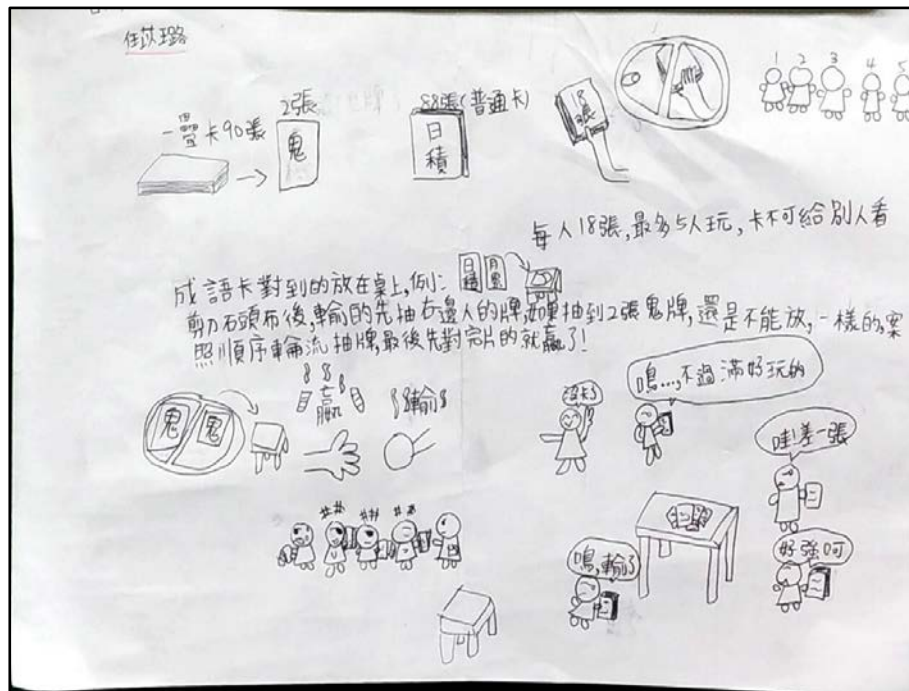 任苡璐
1 2 3 4 5
2張
88張(普通卡)
一疊卡90張
鬼
日積
18張
每人18張,最多5人玩,卡不可給別人看
成語卡對到的放在桌上,例:日積 月累
剪刀石頭布後,輸的先抽右邊人的牌,如果抽到2張鬼牌,還是不能放,一樣的案
照順序輪流抽牌,最後先對完片的就贏了!
鬼 鬼
贏
輸
沒卡了
嗚...,不過滿好玩的
哇!差一張
好強呵
嗚,輸了